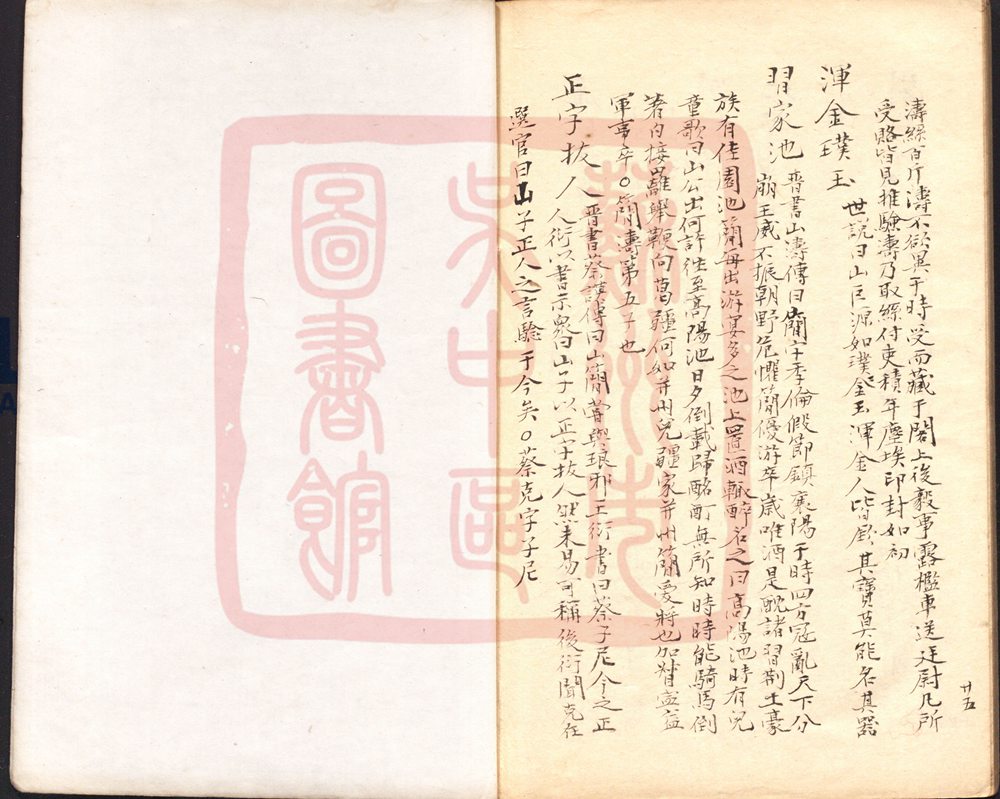 濤絲百斤濤不欲異于時受而藏于閣上後毅事露檻車送廷尉凡所
受賂皆見推驗濤乃取絲付吏積年塵埃印封如初
渾金璞玉 世說曰山巨源如璞金玉渾金人皆欽其寶莫能名其器
習家池 晋書山濤傳曰簡字季倫假節鎮襄陽于時四方寇亂天下分
崩王威不振朝野危懼簡優游卒歲唯酒是酖諸習荆土豪
族有佳園池簡每出游宴多之池上置酒輒醉名之曰高陽池時有兒
童歌曰山公出何許往至高陽池日夕倒載歸酩酊無所知時時能騎馬倒
著白接䍦舉鞭向葛疆何如并州兒疆家并州簡愛將也加督寧益
軍事卒○簡濤第五子也
正字拔人 晋書蔡謨傳曰山簡嘗與琅邪王衍書曰蔡子尼今之正
人衍以書示衆曰山子以正字拔人然未易可稱後衍聞克在
選官曰山子正人之言驗于今矣○蔡克字子尼
廿五
蘇州市
吴中區
圖書館